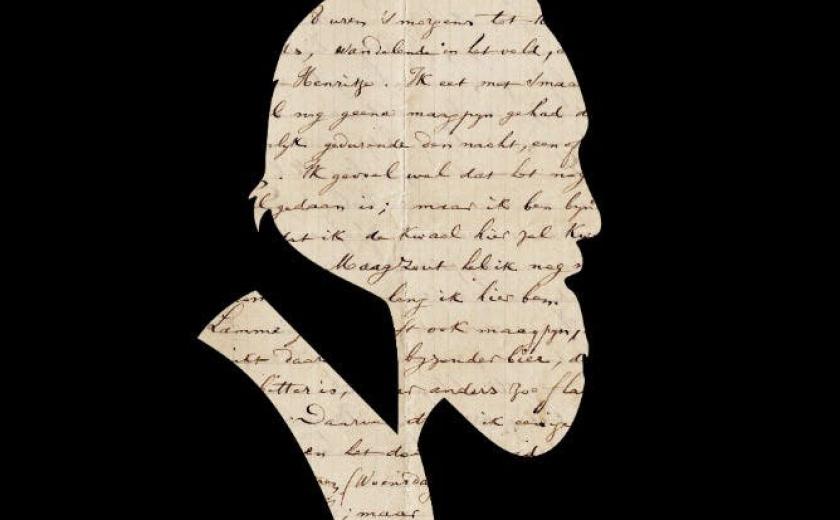 uren 's morgens tot
wandelende in het veld,
Henritje. Ik eet met smaa
nog geene maagpyn gehad
gedurende den nacht, een of
Ik gevoel wel dat het nog
gedaan is; maar ik ben byn
dat ik de kwaal hier zal
Maagzout heb ik nog
ling ik hier ben
Lamme ook maagpyn,
byzonder bier,
bitter is, anders zoo fla
Daarva ik eenige
en het
(Woensdag
; maar